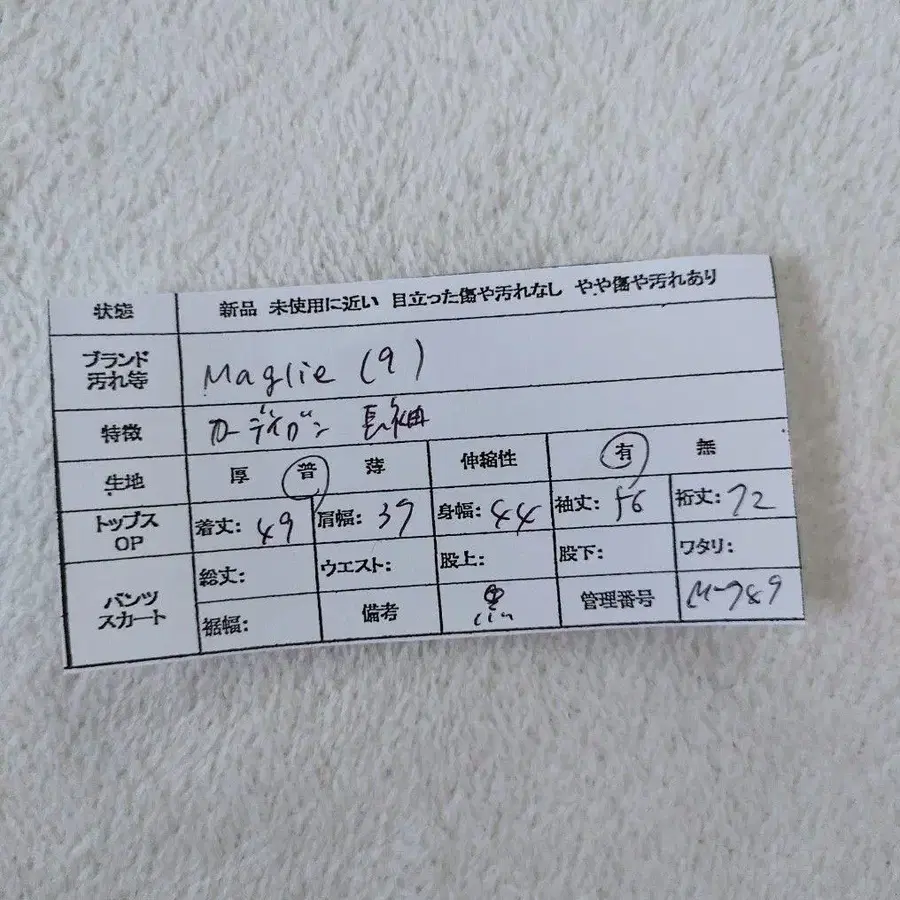 状態 新品 未使用に近い 目立った傷や汚れなし やや傷や汚れあり
ブランド
汚れ等 Maglie (9)
特徴 カーディガン 長袖
生地 厚 普 薄 伸縮性 有 無
トップス
OP 着丈: 49 肩幅: 37 身幅: 44 袖丈: 56 裄丈: 72
パンツ
スカート 総丈: ウエスト: 股上: 股下: ワタリ:
裾幅: 備考 黒 管理番号